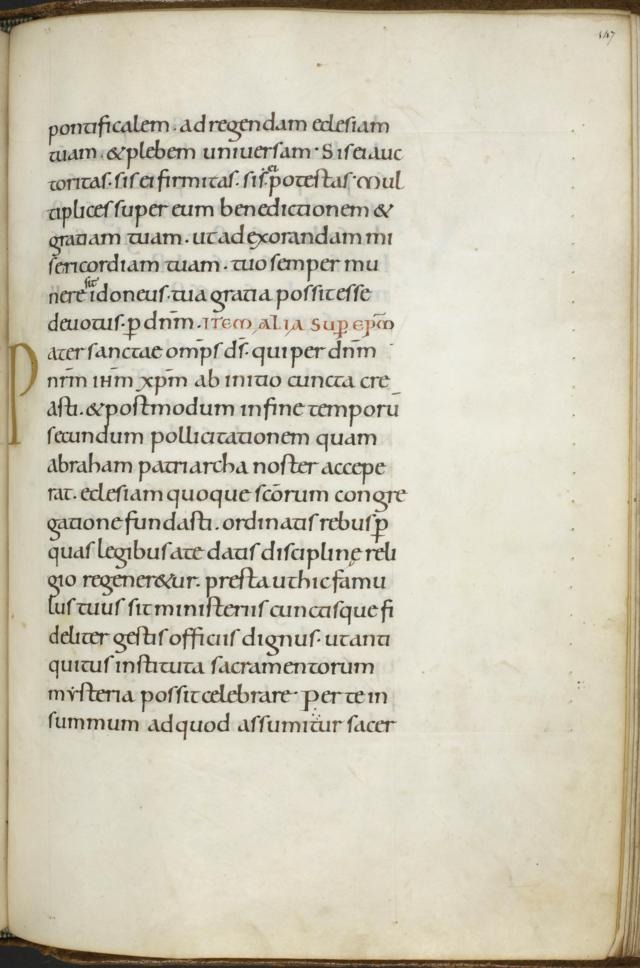 147
pontificalem . ad regendam eclesiam
tuam . & plebem universam · Sis ei auc
toritas · sis ei firmitas · sis ei potestas · Mul
tiplices super eum benedictionem &
gratiam tuam · ut ad exorandam mi
sericordiam tuam · tuo semper mu
nere sit idoneus · tua gratia possit esse
devotus · p̄ dn̄m · ITEM ALIA SUP̄ EP̄M
Pater sanctae om̄ps d̄s · qui per dn̄m
nr̄m ih̄m xp̄m ab initio cuncta cre
asti · & postmodum in fine temporū
secundum pollicitationem quam
abraham patriarcha noster accepe
rat · eclesiam quoque sc̄orum congre
gatione fundasti · ordinatis rebus p̄
quas legibus a te datis disciplinę reli
gio regener&ur · presta ut hic famu
lus tuus sit ministeriis cunctisque fi
deliter gestis officiis dignus · ut anti
quitus instituta sacramentorum
mẏsteria possit celebrare · per te in
summum ad quod assumitur sacer